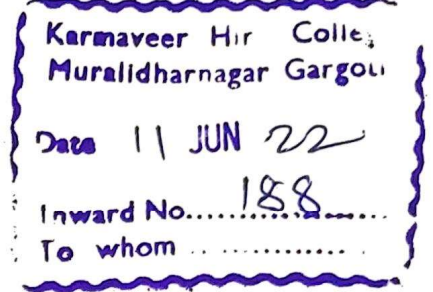 Karmaveer Hir Colle
Muralidharnagar Gargoti
Date 11 JUN 22
Inward No. 188
To whom